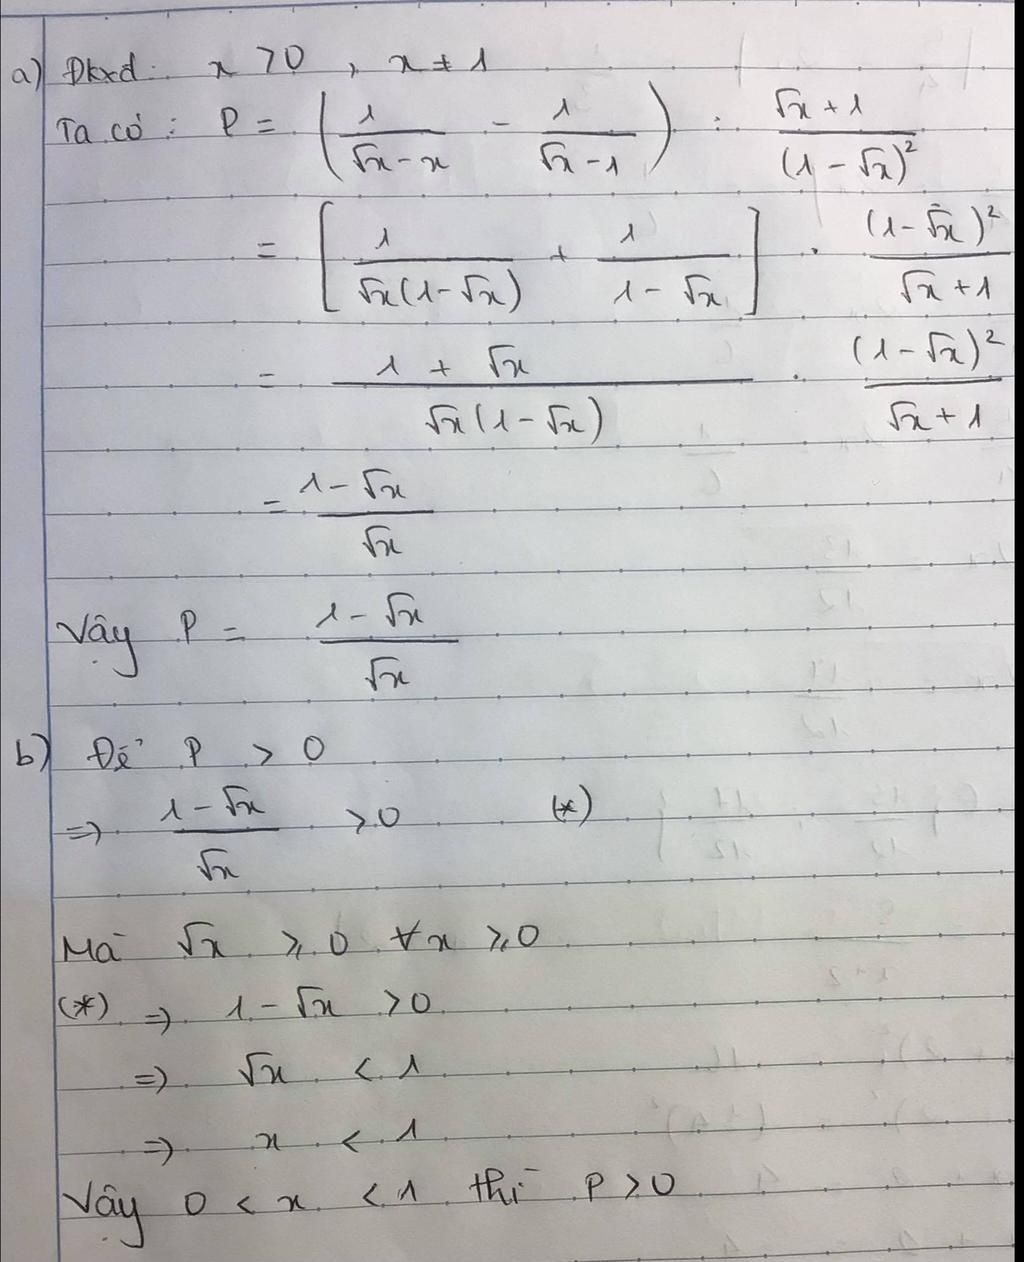 a) Đkxđ: x > 0, x ≠ 1
Ta có: P = (1/(√x - x) - 1/(√x - 1)) : (√x + 1)/(1 - √x)²
= [1/(√x(1 - √x)) + 1/(1 - √x)] . (1 - √x)²/(√x + 1)
= (1 + √x)/(√x(1 - √x)) . (1 - √x)²/(√x + 1)
= (1 - √x)/√x
Vậy P = (1 - √x)/√x
b) Để P > 0
=> (1 - √x)/√x > 0 (*)
Mà √x ⩾ 0 ∀x ⩾ 0
(*) => 1 - √x > 0
=> √x < 1
=> x < 1
Vậy 0 < x < 1 thì P > 0